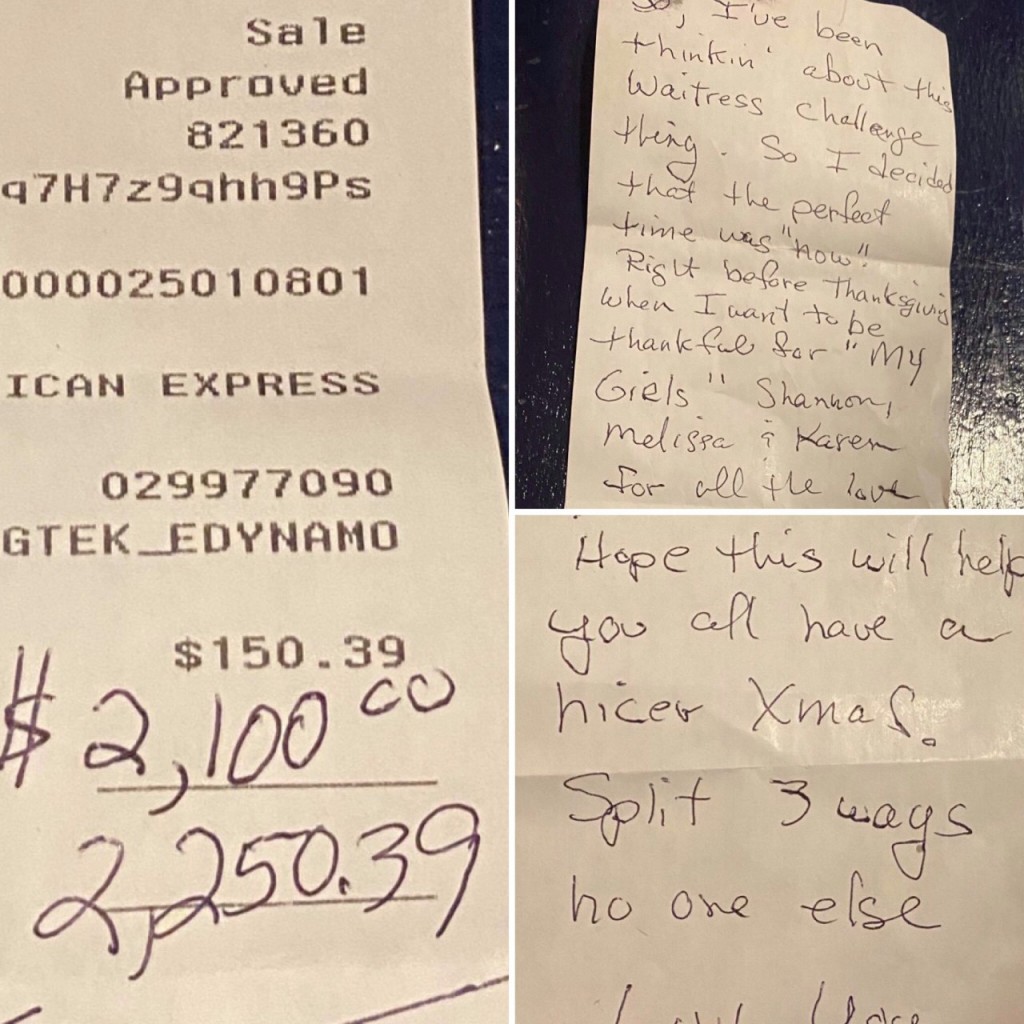 Sale
Approved
821360
q7H7z9qhh9Ps
000025010801
ICAN EXPRESS
029977090
GTEK_EDYNAMO
$150.39
$ 2,100 00
2,250.39
So, I've been
thinkin' about this
Waitress challenge
thing. So I decided
that the perfect
time was "now".
Right before Thanksgiving
when I want to be
thankful for "My
Girls" Shannon,
Melissa & Karen
for all the love
Hope this will help
you all have a
nicer Xmas.
Split 3 ways
no one else